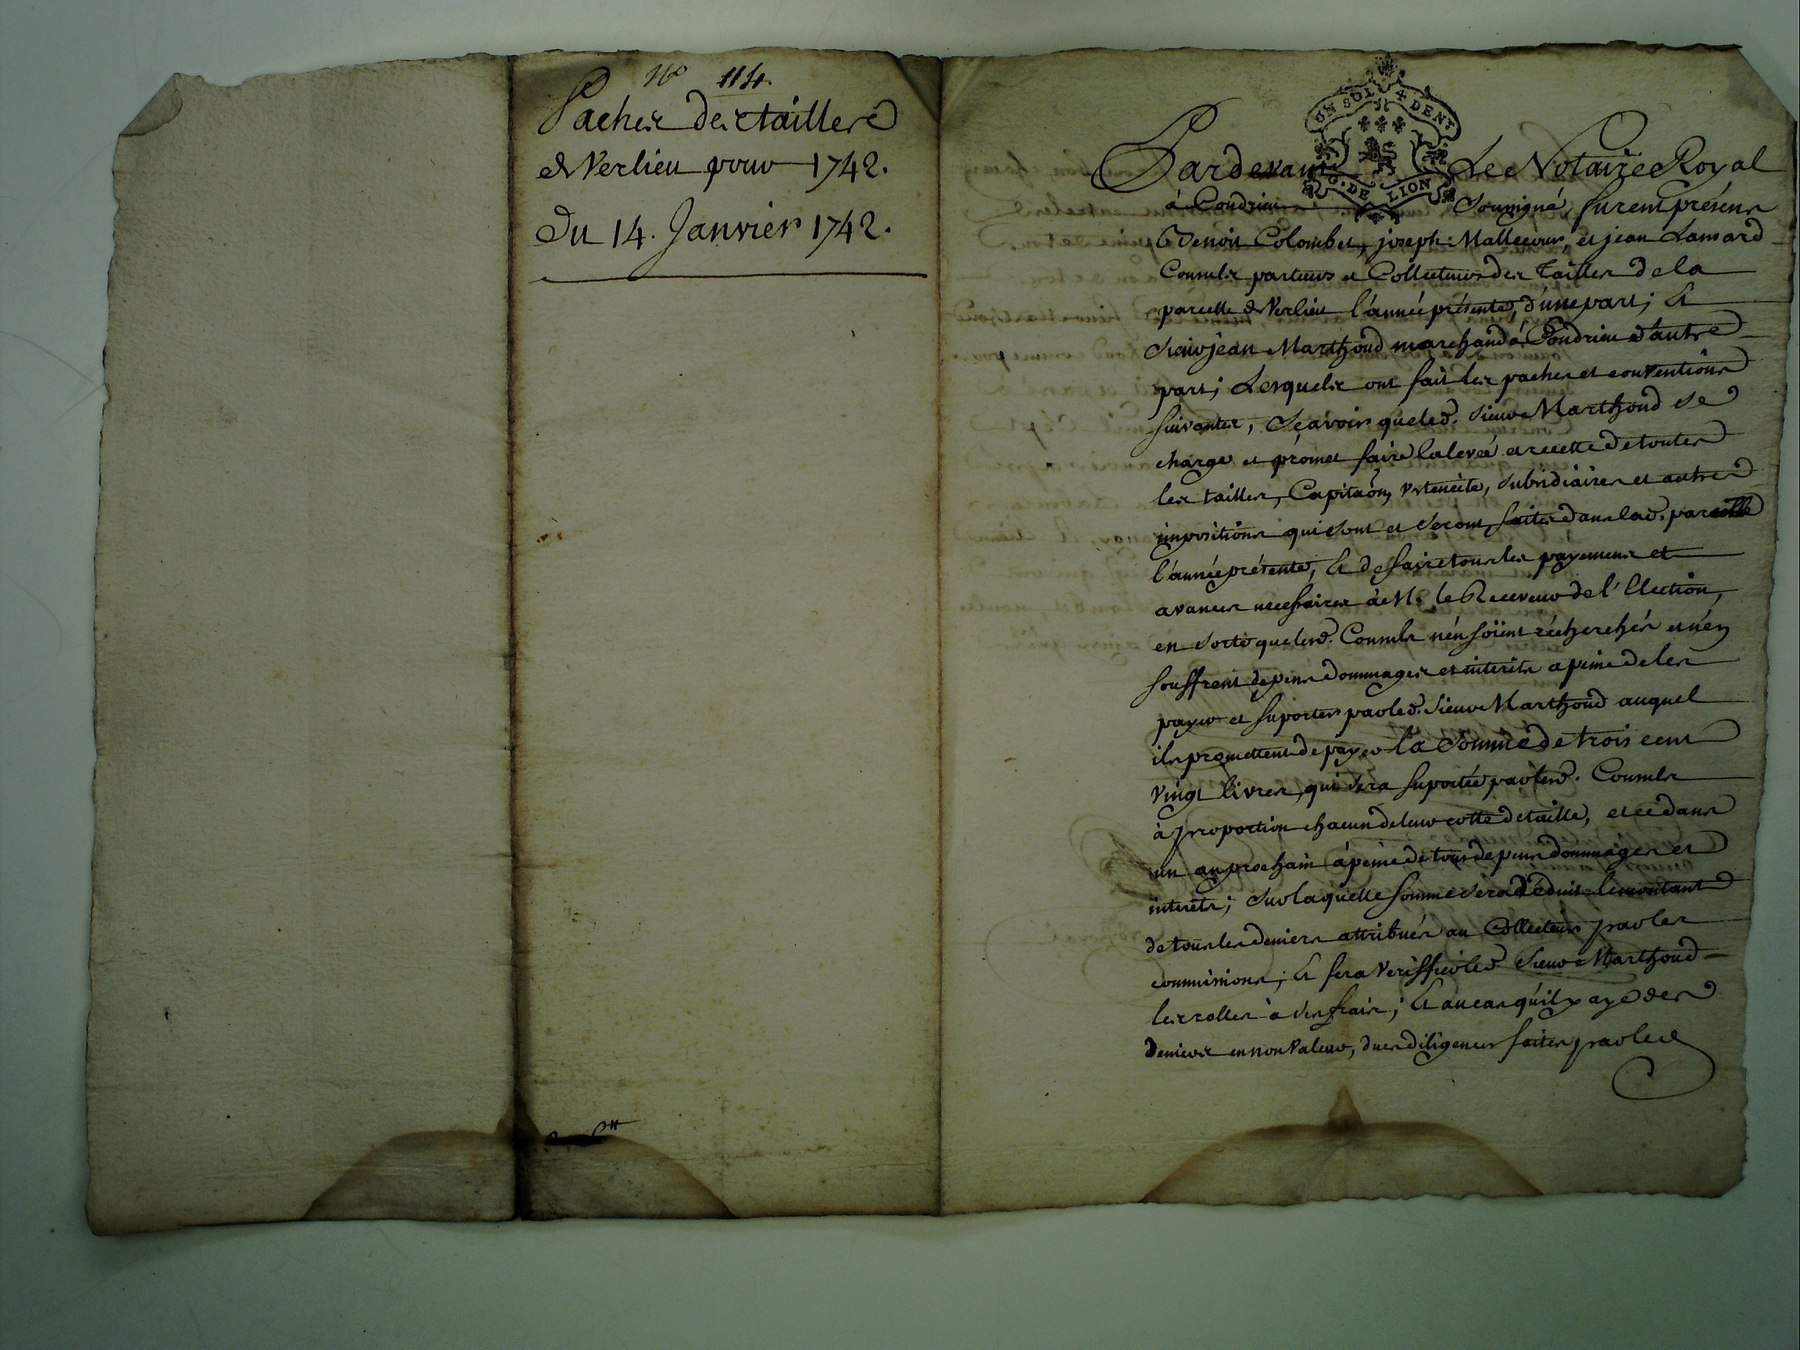 N.o 114.
Paches des tailles
de Verlieu pour 1742.
Du 14. Janvier 1742.
UN SOL DENr
G. DE LION
Pardevant Le Notaire Royal
à Condrieu soussigné, furent présens
Benoit Colombet, joseph Mallecour, et jean Lamard
Consuls parteurs et Collecteurs des Tailles de la
parcelle de Verlieu l'année présente, d'une part; Et
Sieur jean Marthoud marchand à Condrieu d'autre
part; Lesquels ont fait les paches et conventions
suivantes, Sçavoir que led. sieur Marthoud se
charge et promet faire la levée et recette de toutes
les tailles, Capitaôn, Vstencile, subsidiaires et autres
impositions qui sont et seront faites dans lad. parcelle
l'année présente, Et de faire tous les payemens et
avances necessaires à M. le Receveur de l'Election,
en sorte que lesd. Consuls n'en soïent récherchés et n'en
souffrent depens dommages et interets a peine de les
payer et suporter par led. Sieur Marthoud auquel
ils promettent de payer la somme de trois cent
vingt livres, qui sera suportée par lesd. Consuls
à proportion chacun de leur cotte de taille, et ce dans
un an prochain à peine de tous depens dommages et
interets; sur laquelle somme sera déduit le montant
de tous les deniers attribués au Collecteur par les
commissions; Et fera veriffier led. Sieur Marthoud
les rolles à ses frais; Et au cas qu'il y aye des
deniers en non Valeur, dues diligences faites par led.